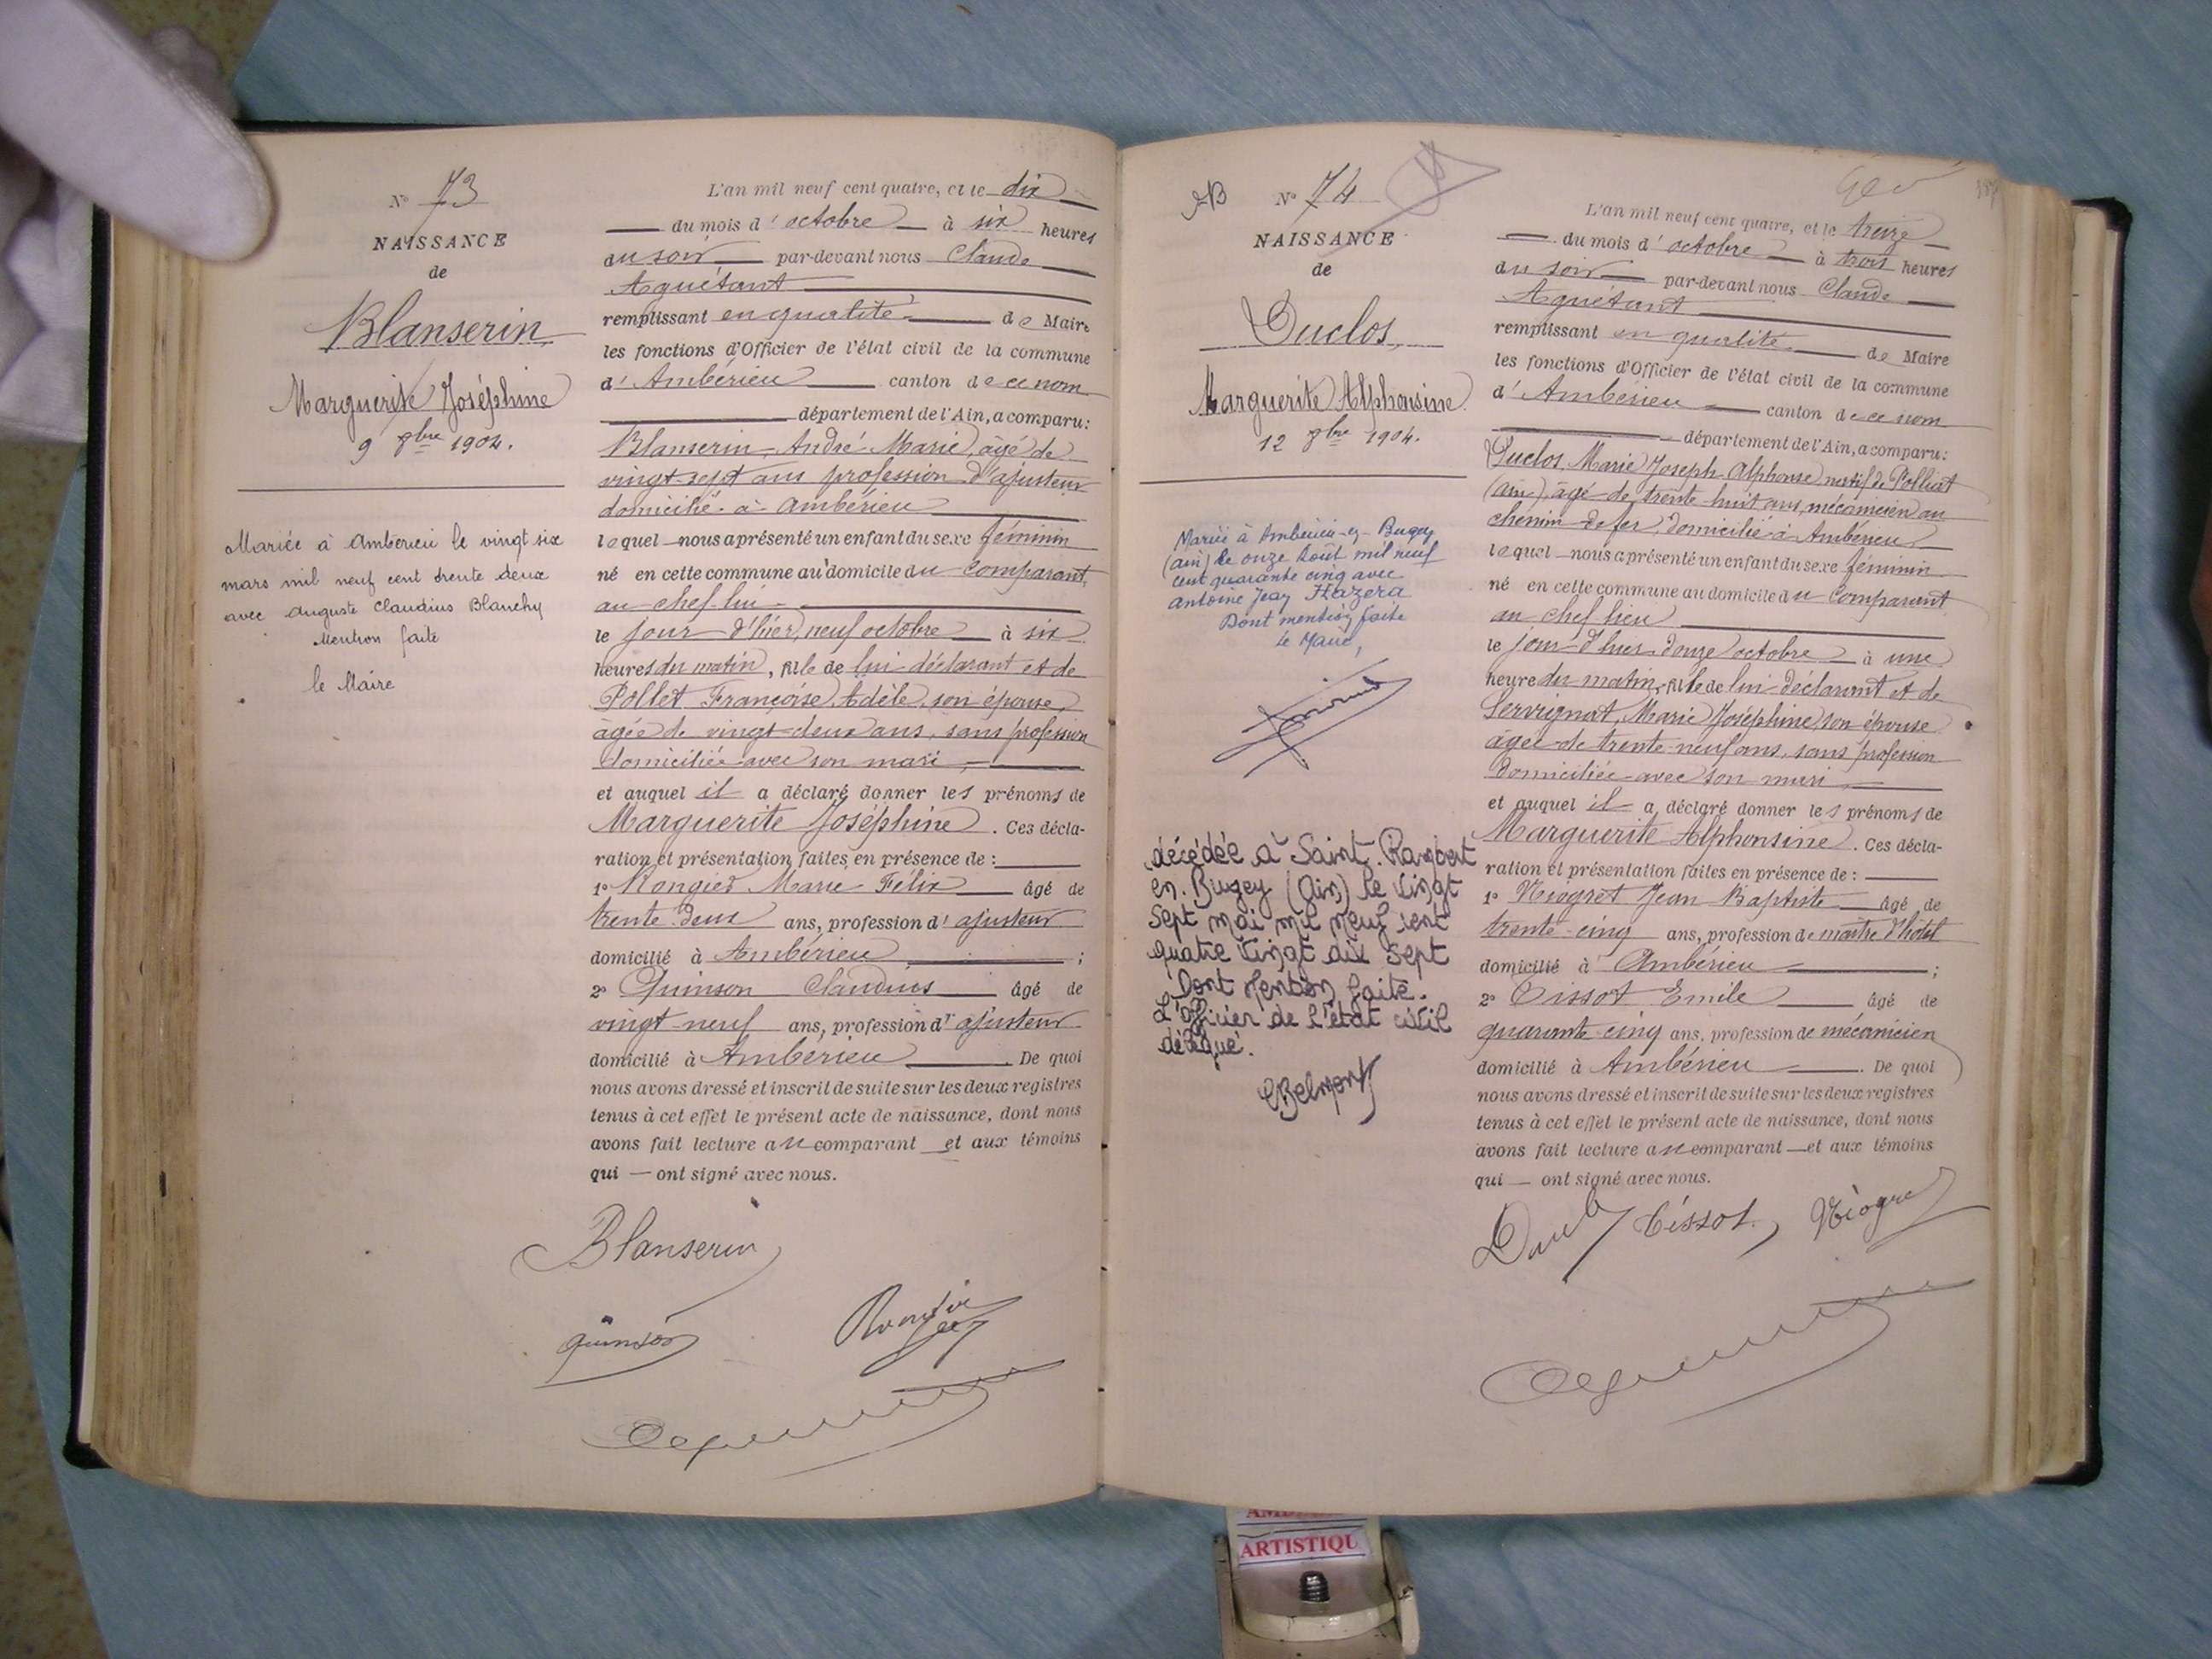 N° 73
NAISSANCE
de
Blanserin
Marguerite Joséphine
9 8bre 1904.
Mariée à Ambérieu le vingt six
mars mil neuf cent trente deux
avec Auguste Claudius Blanchy
Mention faite
le Maire
L'an mil neuf cent quatre, et le dix
du mois d'octobre à six heures
du soir par-devant nous Claude
Aguétant
remplissant en qualité de Maire
les fonctions d'Officier de l'état civil de la commune
d'Ambérieu canton de ce nom
département de l'Ain, a comparu:
Blanserin André Marie, âgé de
vingt-sept ans profession d'ajusteur
domicilié à Ambérieu
lequel nous a présenté un enfant du sexe féminin
né en cette commune au domicile du comparant,
au chef-lieu
le jour d'hier, neuf octobre à six
heures du matin, fille de lui déclarant et de
Pollet Françoise Adèle, son épouse,
âgée de vingt-deux ans, sans profession
domiciliée avec son mari,
et auquel il a déclaré donner les prénoms de
Marguerite Joséphine. Ces décla-
ration et présentation faites en présence de :
1° Rongier Marie Félix âgé de
trente deux ans, profession d'ajusteur
domicilié à Ambérieu ;
2° Quinson Claudius âgé de
vingt-neuf ans, profession d'ajusteur
domicilié à Ambérieu. De quoi
nous avons dressé et inscrit de suite sur les deux registres
tenus à cet effet le présent acte de naissance, dont nous
avons fait lecture au comparant et aux témoins
qui — ont signé avec nous.
Blanserin
Quinson
N° 74
NAISSANCE
de
Duclos
Marguerite Alphonsine
12 8bre 1904.
Mariée à Ambérieu-en-Bugey
(ain) le onze Août mil neuf
cent quarante cinq avec
Antoine Jean Hazera
Dont mention faite
Le Maire,
décédée à Saint. Rambert
en. Bugey (Ain) le vingt
sept mai mil neuf cent
quatre vingt dix sept
Dont mention faite.
L'officier de l'état civil
délégué.
CBelmont
L'an mil neuf cent quatre, et le treize
du mois d'octobre à trois heures
du soir par-devant nous Claude
Aguétant
remplissant en qualité de Maire
les fonctions d'Officier de l'état civil de la commune
d'Ambérieu canton de ce nom
département de l'Ain, a comparu:
Duclos, Marie Joseph Alphonse natif de Polliat
(ain), âgé de trente-huit ans, mécanicien au
chemin de fer, domicilié à Ambérieu
lequel nous a présenté un enfant du sexe féminin
né en cette commune au domicile du comparant
au chef lieu
le jour d'hier douze octobre à une
heure du matin, fille de lui déclarant et de
Servignat, Marie Joséphine, son épouse
âgée de trente-neuf ans, sans profession
domiciliée avec son mari
et auquel il a déclaré donner les prénoms de
Marguerite Alphonsine. Ces décla-
ration et présentation faites en présence de :
1° Niogret Jean Baptiste âgé de
trente-cinq ans, profession de maître d'hôtel
domicilié à Ambérieu ;
2° Tissot Emile âgé de
quarante-cinq ans, profession de mécanicien
domicilié à Ambérieu. De quoi
nous avons dressé et inscrit de suite sur les deux registres
tenus à cet effet le présent acte de naissance, dont nous
avons fait lecture au comparant — et aux témoins
qui — ont signé avec nous.
Tissot
ARTISTIQU